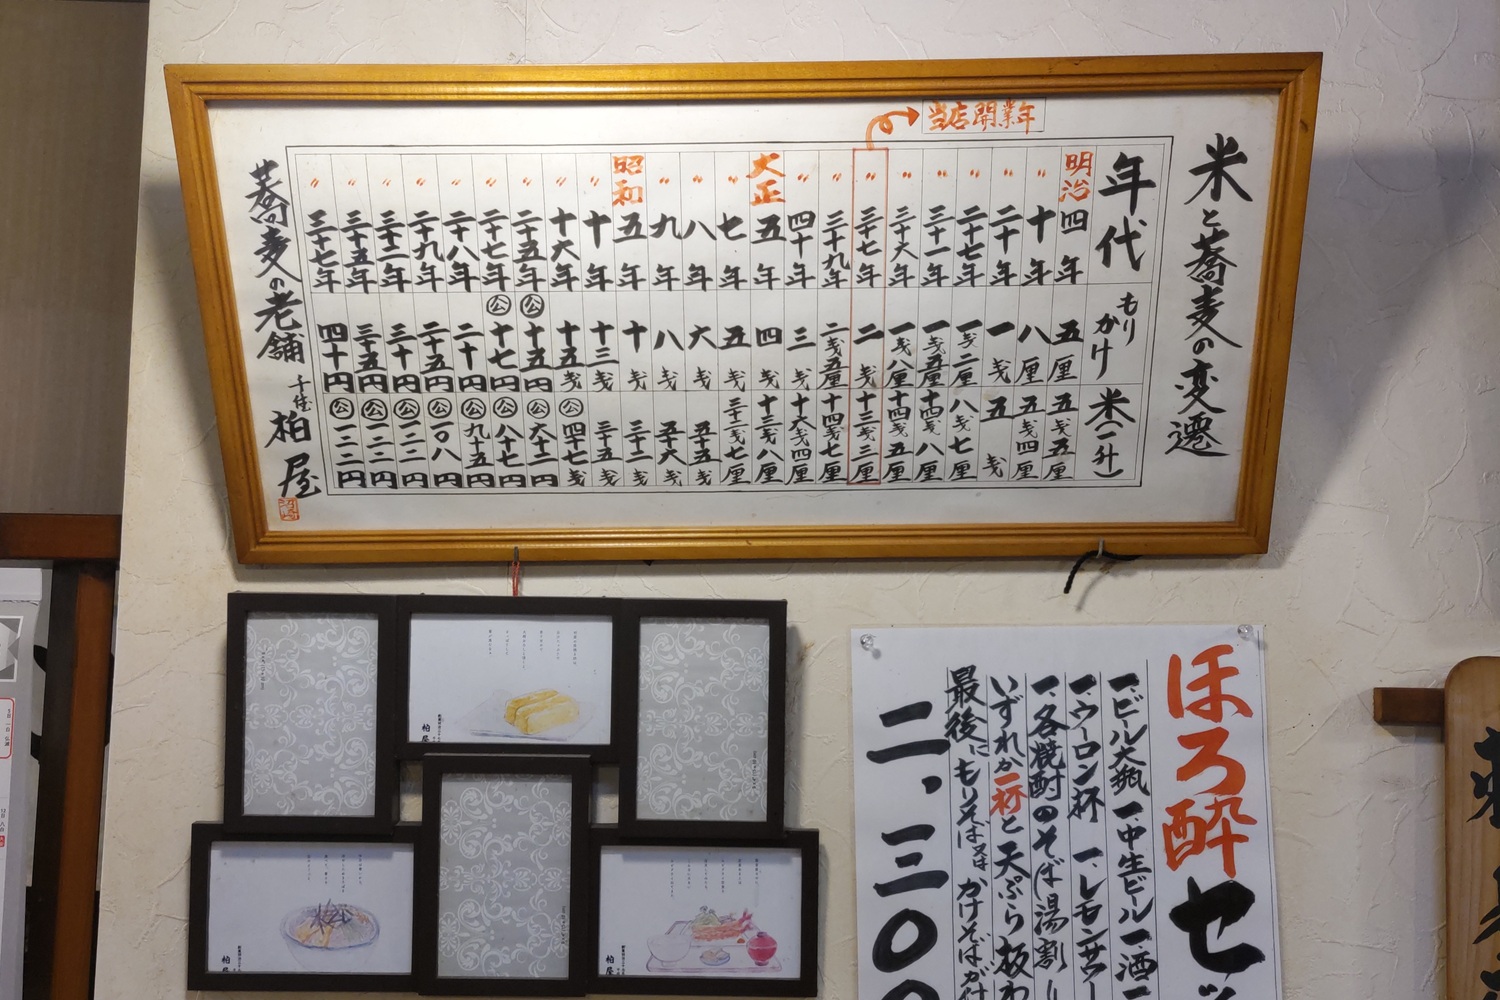 米と蕎麦の変遷
当店開業年
年代 もりかけ 米(一升)
明治四年 五厘 五銭五厘
〃十年 八厘 五銭四厘
〃二十年 一銭 五銭
〃二十七年 一銭二厘 八銭七厘
〃三十一年 一銭五厘 十四銭八厘
〃三十六年 一銭八厘 十四銭五厘
〃三十七年 二銭 十三銭三厘
〃三十九年 二銭五厘 十四銭七厘
〃四十年 三銭 十六銭四厘
大正五年 四銭 十三銭八厘
〃七年 五銭 三十二銭七厘
〃八年 六銭 五十五銭
〃九年 八銭 五十六銭
昭和五年 十銭 三十二銭
〃十年 十三銭 三十五銭
〃十六年 十五銭 公四十七銭
〃二十五年 公十五円 公六十二円
〃二十七年 公十七円 公八十七円
〃二十八年 二十円 公九十五円
〃二十九年 二十五円 公一〇八円
〃三十二年 三十円 公一二二円
〃三十五年 三十五円 公一二二円
〃三十七年 四十円 公一二二円
蕎麦の老舗 千住 柏屋
柏屋
柏屋
柏屋
ほろ酔セッ
一、ビール大瓶 一、中生ビール 一、酒
一、ウーロン杯 一、レモンサワー
一、各焼酎のそば湯割り
いずれか一杯と天ぷら板わ
最後にもりそば又はかけそばが付
二、三〇〇